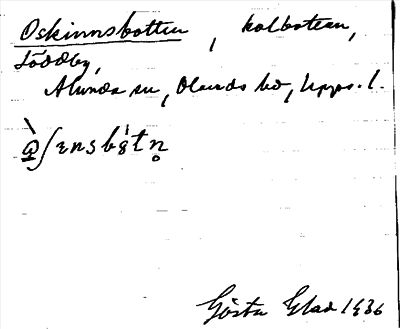 Oskinnsbotten, kolbotten,
Löddby,
Alunda sn, Olands hd, Upps. l.
Gösta Glad 1936